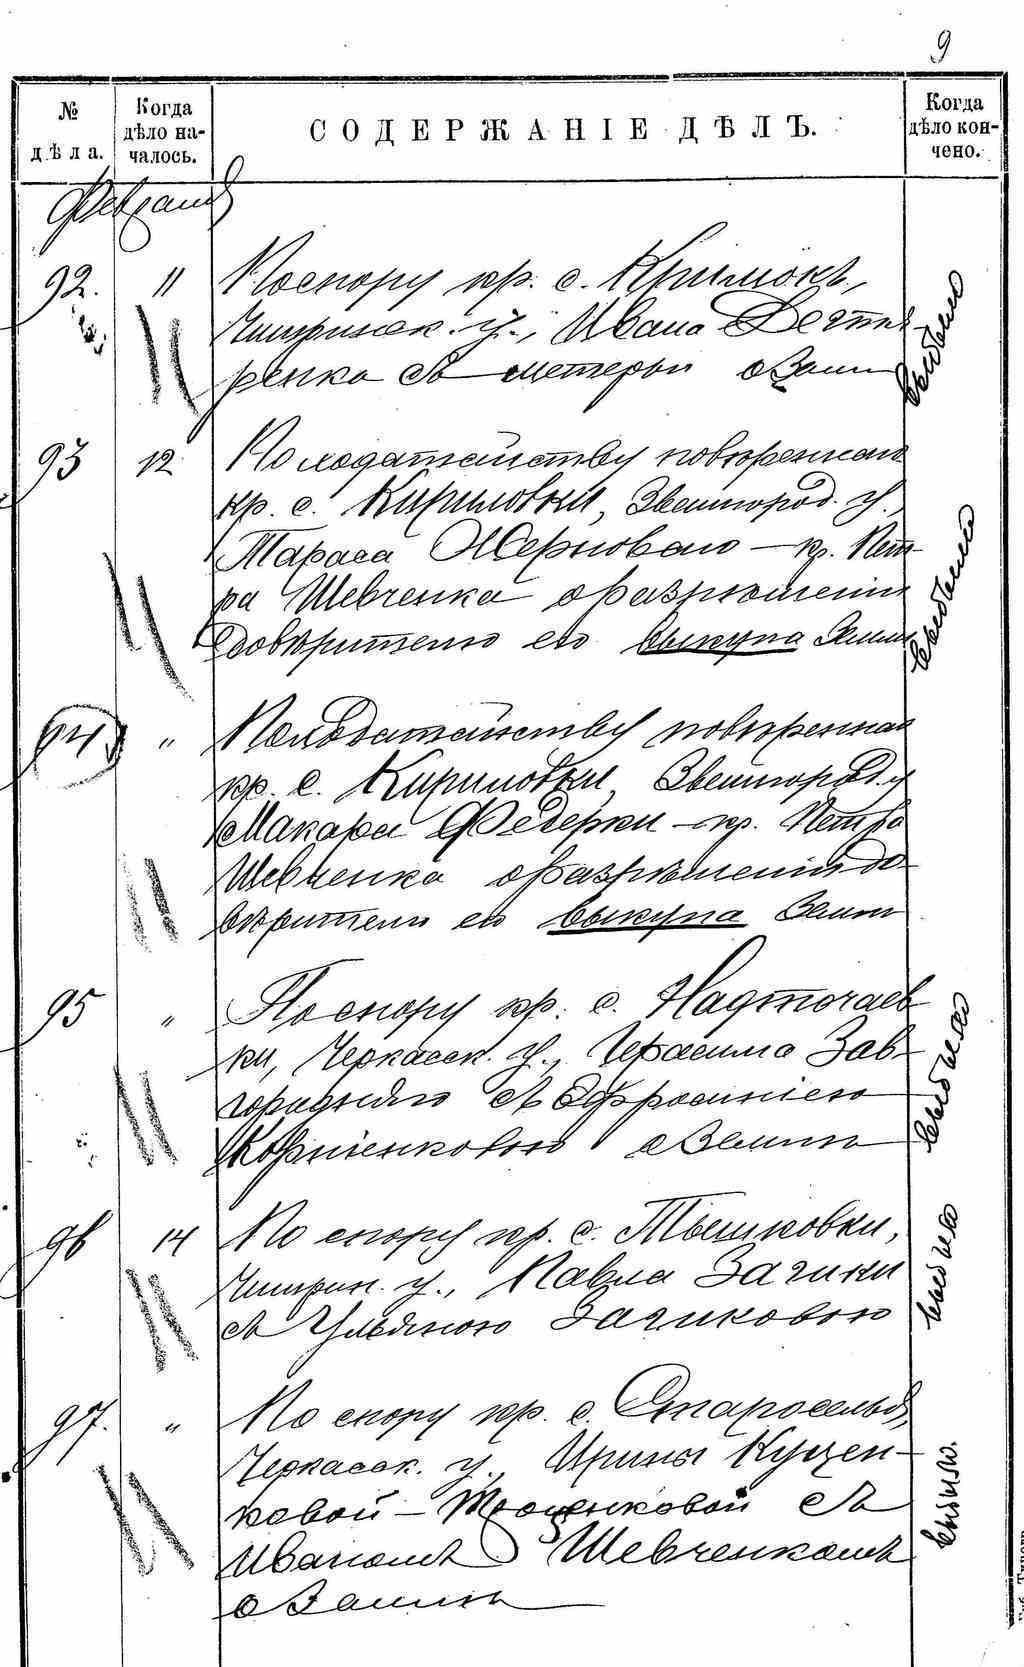 9
№ дѣла.
Когда дѣло на-
чалось.
СОДЕРЖАНІЕ ДѢЛЪ.
Когда дѣло кон-
чено.
Февраля
92. 11 По спору кр. с. Кримокъ,
Чигринск. у., Ивана Дегтя-
ренка съ матерью о земл
выбыло
93 12 По ходатайству повѣреннаго
кр. с. Кириловки, Звенигород. у.,
Тараса Жерноваго — кр. Пет-
ра Шевченка о разрѣшеніи
довѣрителю его выкупа земли
выбыло
94 " По ходатайству повѣреннаго
кр. с. Кириловки, Звенигород. у
Макара Федерки — кр. Петра
Шевченка о разрѣшеніи до-
вѣрителю его выкупа земли
95 " По спору кр. с. Надточаев-
ки, Черкасск. у., Герасима Зав-
городняго съ Ефросиніею
Корніенковою о землѣ
выбыло
96 14 По спору кр. с. Тышковки,
Чигрин. у., Павла Загики
съ Ульяною Загиковою
выбыло
97. " По спору кр. с. Староселья,
Черкасск. у., Ирины Куцен-
ковой — съ
Иваномъ Шевченкомъ
о землѣ
выбыло